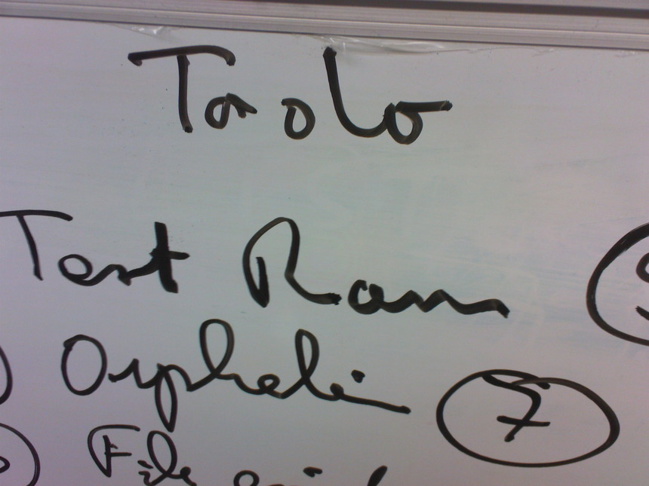 Taolo
Test Ram
Orphelin 7
File